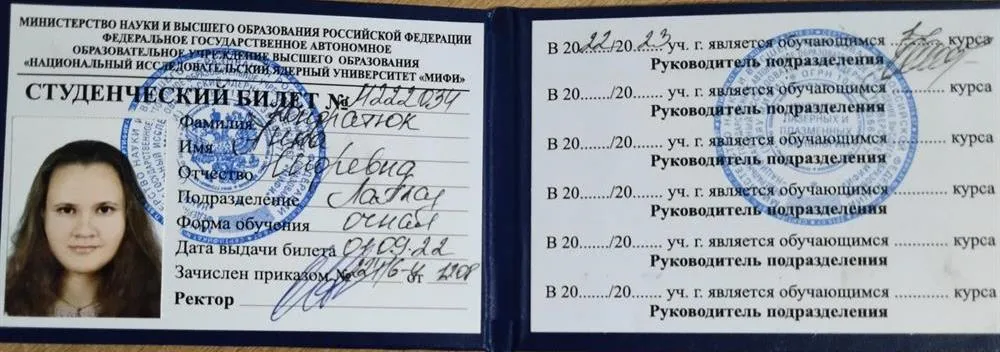 МИНИСТЕРСТВО НАУКИ И ВЫСШЕГО ОБРАЗОВАНИЯ РОССИЙСКОЙ ФЕДЕРАЦИИ
ФЕДЕРАЛЬНОЕ ГОСУДАРСТВЕННОЕ АВТОНОМНОЕ
ОБРАЗОВАТЕЛЬНОЕ УЧРЕЖДЕНИЕ ВЫСШЕГО ОБРАЗОВАНИЯ
«НАЦИОНАЛЬНЫЙ ИССЛЕДОВАТЕЛЬСКИЙ ЯДЕРНЫЙ УНИВЕРСИТЕТ «МИФИ»
СТУДЕНЧЕСКИЙ БИЛЕТ № 4222034
Фамилия
Имя
Отчество Игоревна
Подразделение ЛаПлаз
Форма обучения очная
Дата выдачи билета 01.09.22
Зачислен приказом № от
Ректор
В 2022/2023 уч. г. является обучающимся курса
Руководитель подразделения
В 20......./20....... уч. г. является обучающимся ............ курса
Руководитель подразделения
В 20......./20....... уч. г. является обучающимся ............ курса
Руководитель подразделения
В 20......./20....... уч. г. является обучающимся ............ курса
Руководитель подразделения
В 20......./20....... уч. г. является обучающимся ............ курса
Руководитель подразделения
В 20......./20....... уч. г. является обучающимся ............ курса
Руководитель подразделения
ЛАЗЕРНЫХ И
ПЛАЗМЕННЫХ